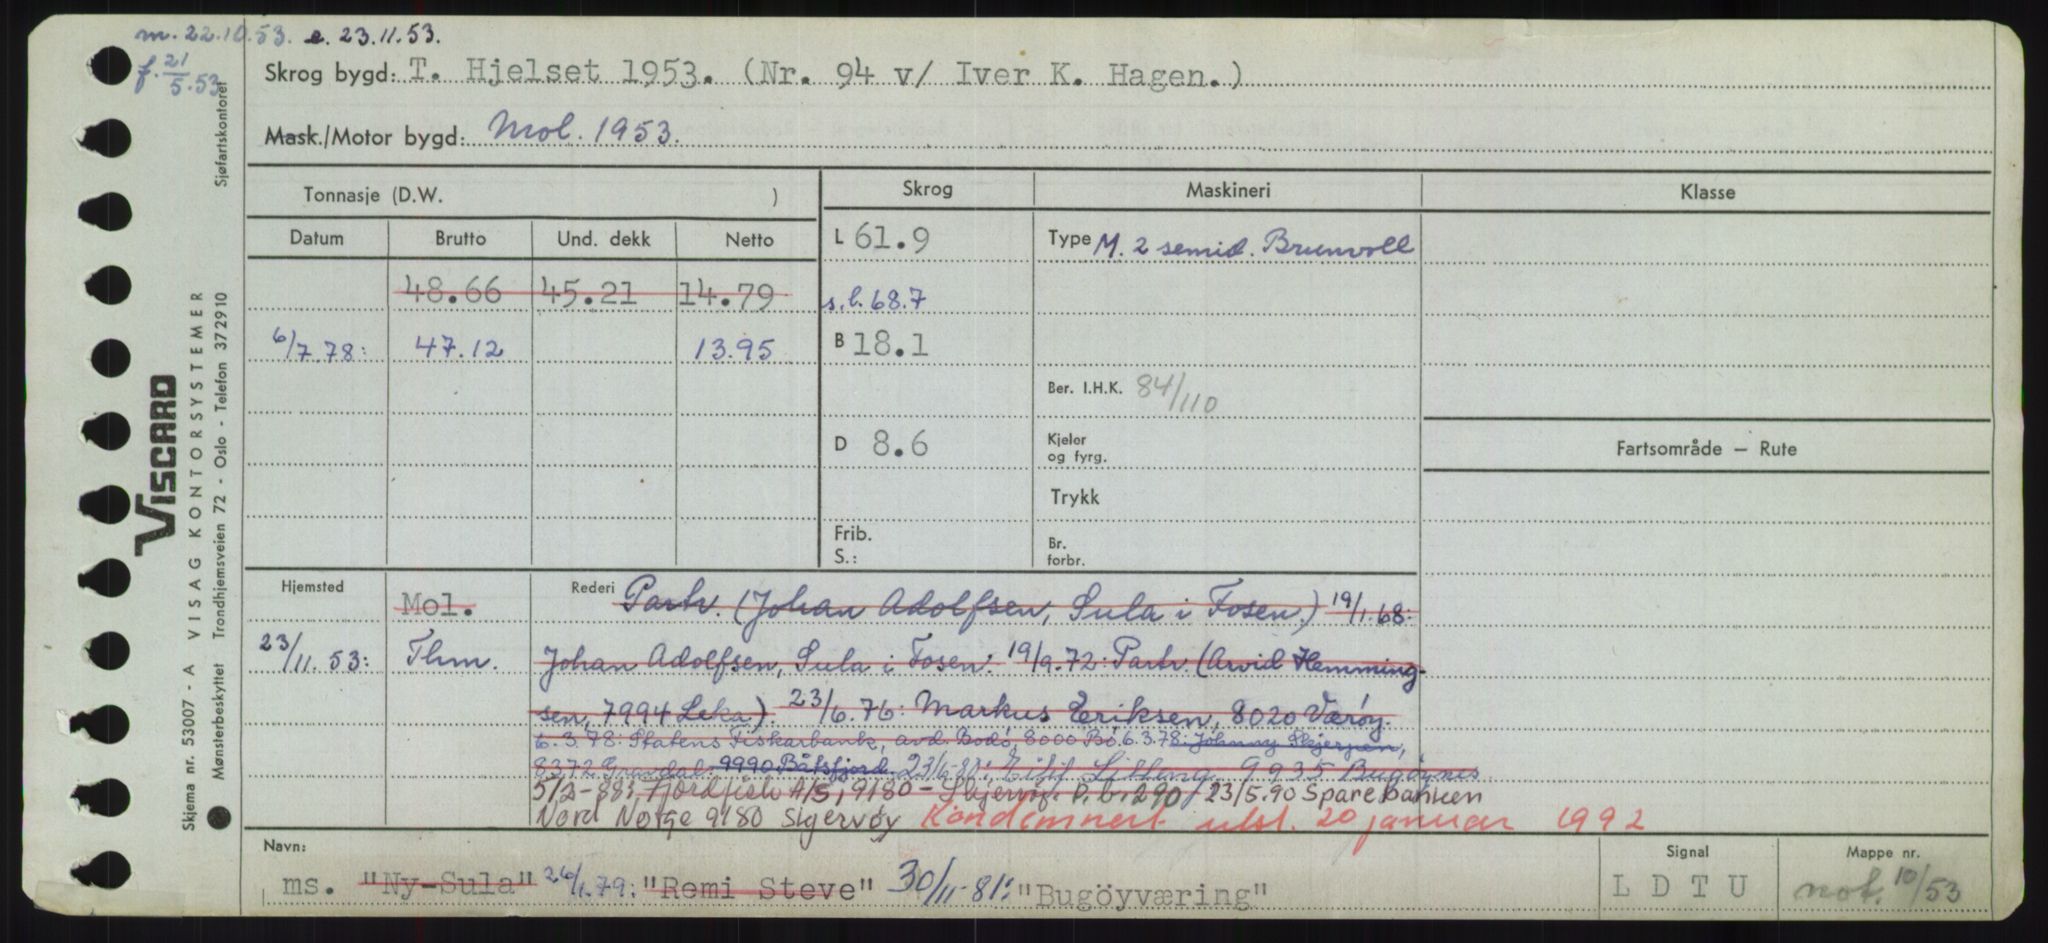 m. 22.10.53. e. 23.11.53.
f. 21/5.53
Skrog bygd: T. Hjelset 1953. (Nr. 94 v/ Iver K. Hagen.)
Mask./Motor bygd: Mol. 1953.
Tonnasje (D.W. )
Skrog
Maskineri
Klasse
Datum Brutto Und. dekk Netto
L 61.9
Type M. 2 semid. Brunvoll
48.66 45.21 14.79
s.l. 68.7
6/7.78: 47.12 13.95
B 18.1
Ber. I.H.K. 84/110
D 8.6
Kjeler og fyrg.
Fartsområde – Rute
Trykk
Frib.
S.:
Br. forbr.
Hjemsted Mol. Rederi Partr. (Johan Adolfsen, Sula i Fosen.) 19/1.68:
23/11.53: Thm. Johan Adolfsen, Sula i Fosen. 19/9.72: Partr. (Arvid Hemming-
sen, 7994 Leka). 23/6.76: Markus Eriksen, 8020 Værøy.
6.3.78: Statens Fiskarbank, avd. Bodø, 8000 Bo. 6.3.78: Johnny Skjerpen,
8372 Gravdal. 9990 Båtsfjord. 23/6-81: 9935 Bugöynes
5/2-88: Fjordfisk A/S, 9180 - Skjervøy. P.b. 290 / 23/5.90 Sparebanken
Nord Norge 9180 Skjervøy Kondemnert utst. 20 januar 1992
Navn:
ms. "Ny-Sula" 26/1.79: "Remi Steve" 30/11-81: "Bugöyværing"
Signal
L D T U
Mappe nr.
not. 10/53
VISCARD
VISAG KONTORSYSTEMER
Skjema nr. 53007 - A
Sjøfartskontoret
Mønsterbeskyttet Trondhjemsveien 72 - Oslo - Telefon 372910